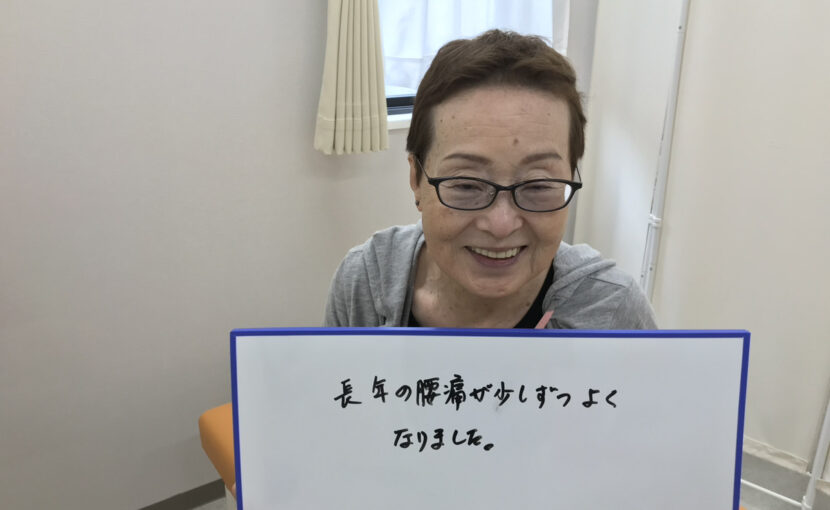 長年の腰痛が少しずつよく
なりました。